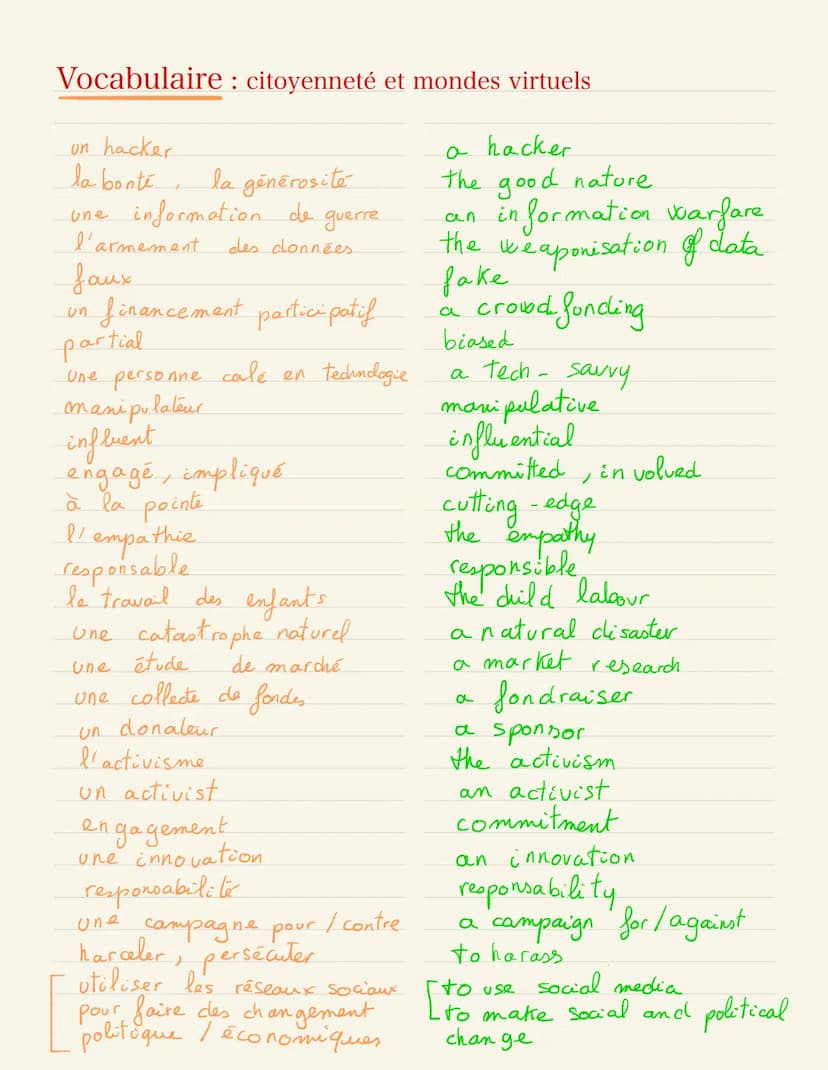 Vocabulaire : citoyenneté et mondes virtuels
un hacker
a hacker
la bonté, la générosité
the good nature
une information de guerre
an information warfare
l'armement des données
the weaponisation of data
faux
fake
un financement participatif
a crowdfunding
partial
biased
une personne calé en technologie
a tech-savvy
manipulateur
manipulative
influent
influential
engagé, impliqué
committed, involved
à la pointe
cutting-edge
l'empathie
the empathy
responsable
responsible
le travail des enfants
the child labour
une catastrophe naturel
a natural disaster
une étude de marché
a market research
une collecte de fondes
a fondraiser
un donateur
a sponsor
l'activisme
the activism
un activist
an activist
engagement
commitment
une innovation
an innovation
responsabilité
responsability
une campagne pour / contre
a campaign for/against
harceler, persécuter
to harass
utiliser les réseaux sociaux
pour faire des changement
politique / économiques
to use social media
to make social and political
change